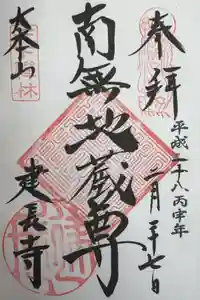 奉拝
平成二十八丙申年
二月二十七日
南無地蔵尊
大本山
建長寺